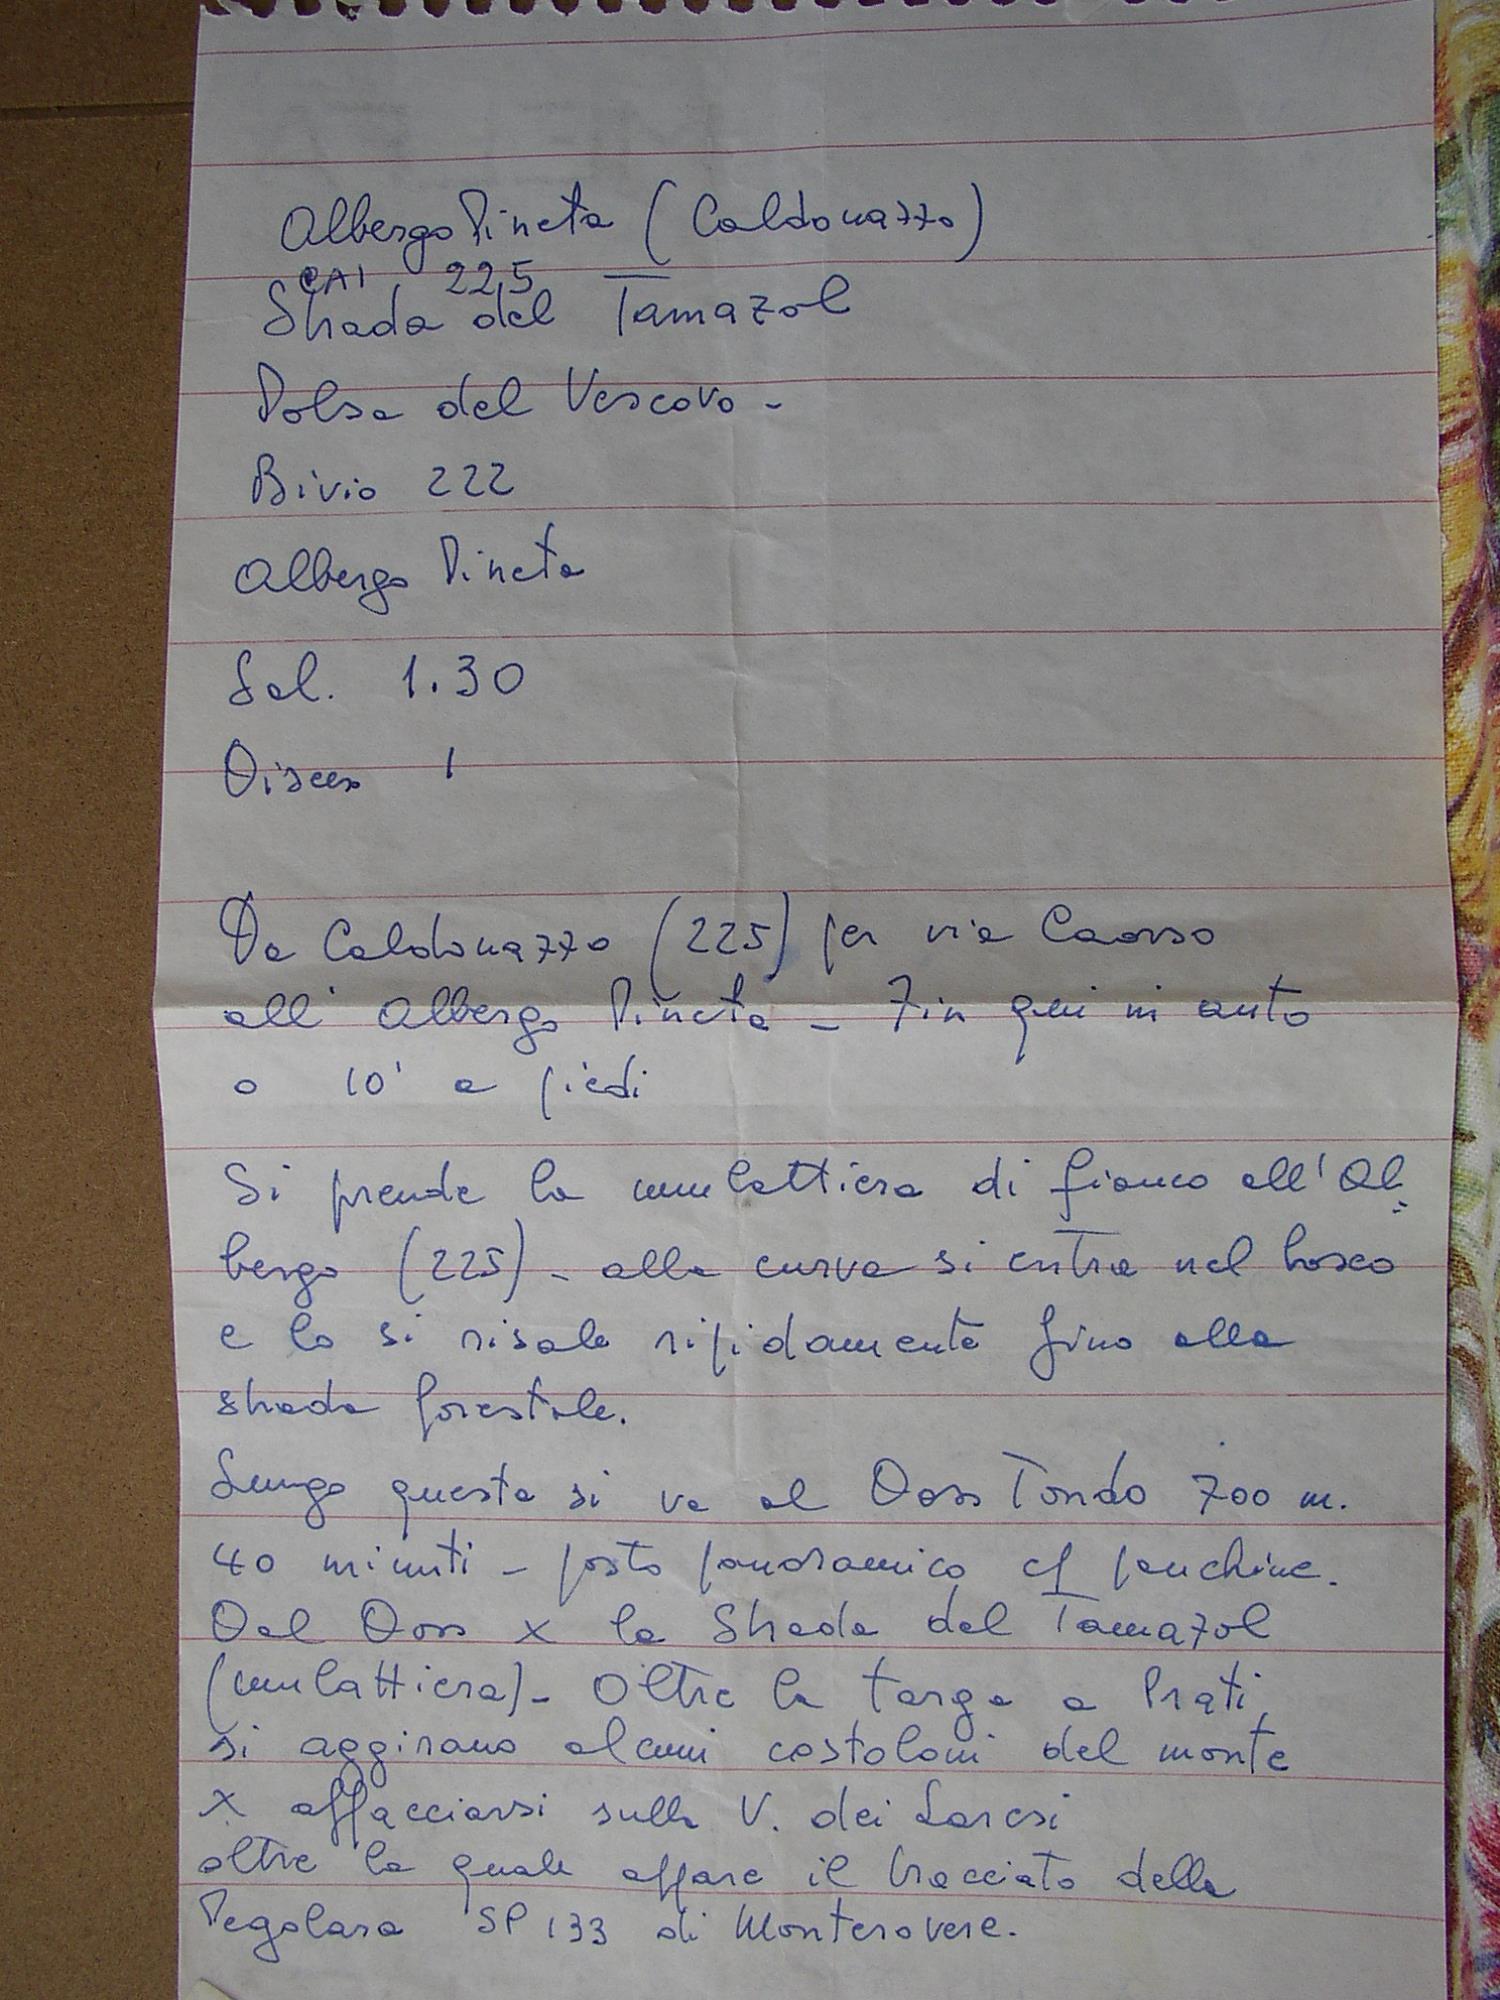 Albergo Pineta (Caldonazzo)
CAI 225
Strada del Tamazol
Polsa del Vescovo -
Bivio 222
Albergo Pineta
Sal. 1.30
Disces 1
Da Caldonazzo (225) per via Caorso
all' Albergo Pineta - Fin qui in auto
o 10' a piedi
Si prende la mulattiera di fianco all'Al-
bergo (225) - alla curva si entra nel bosco
e lo si risale ripidamente fino alla
strada forestale.
Lungo questa si va al Doss Tondo 700 m.
40 minuti - posto panoramico c/ panchine.
Dal Doss x la Strada del Tamazol
(mulattiera) - Oltre la targa a Prati
si aggirano alcuni costoloni del monte
x affacciarsi sulla V. dei Laresi
oltre la quale appare il tracciato della
Pegolara SP 133 di Monterovere.